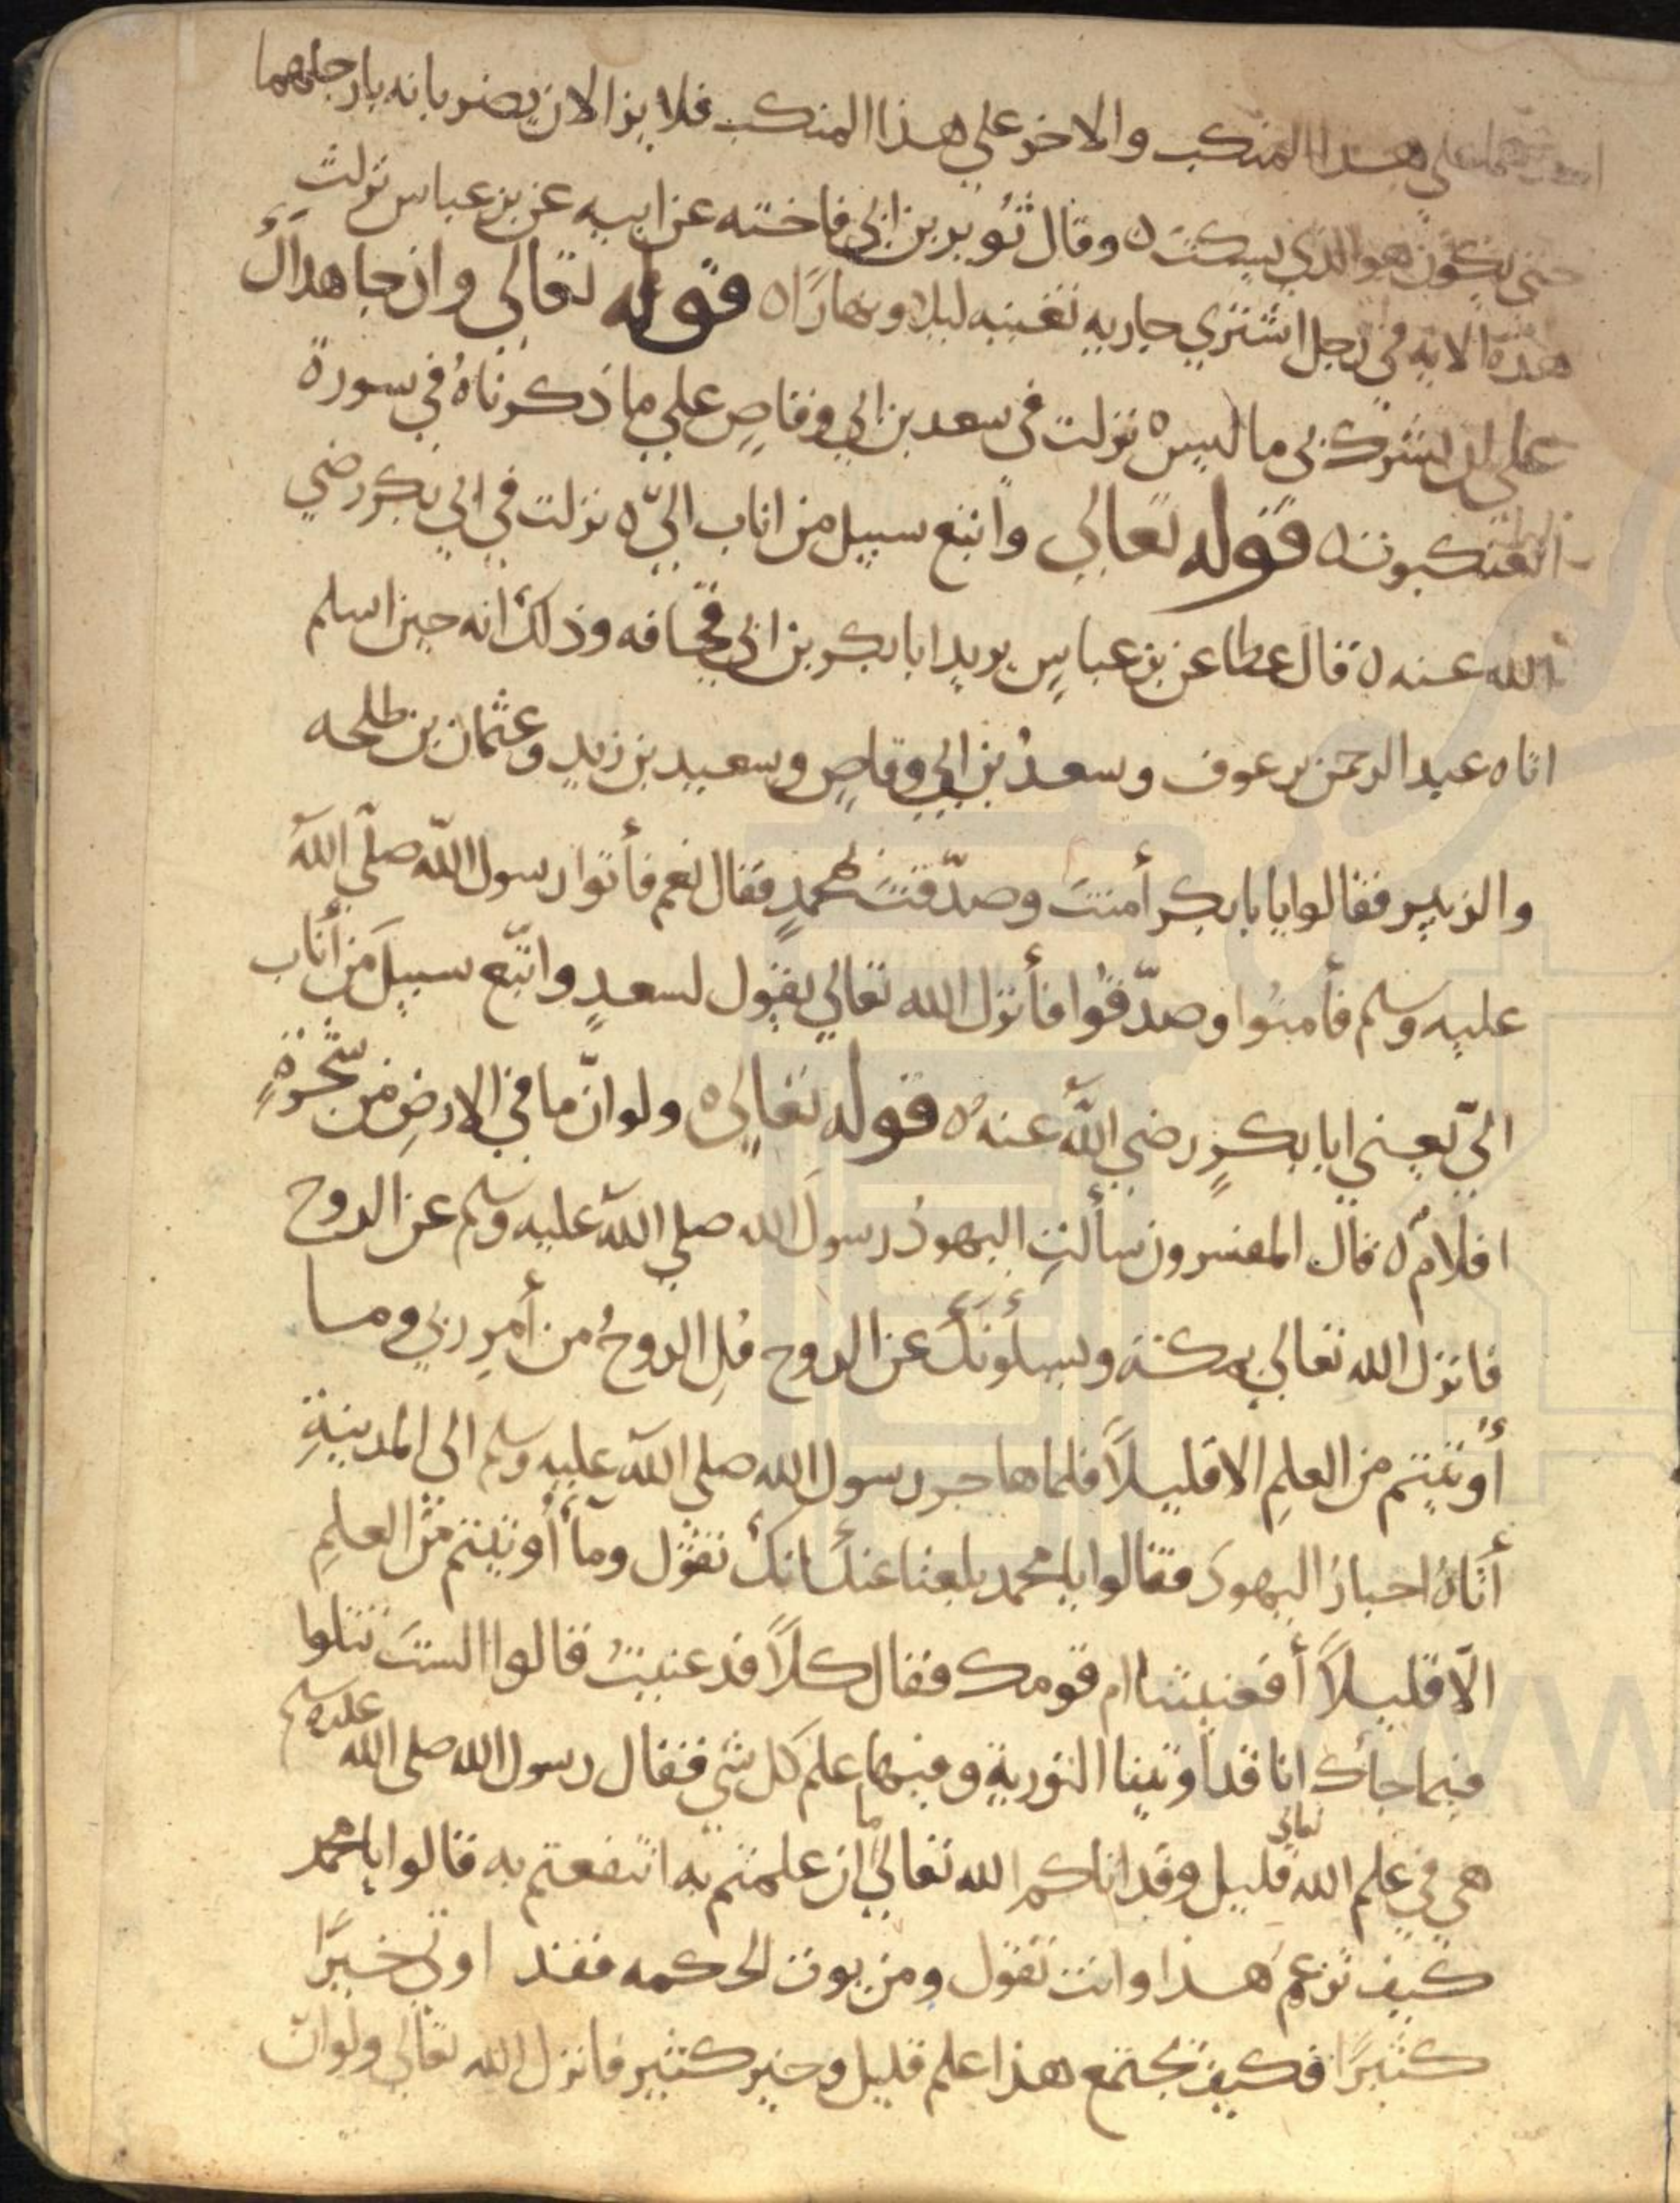 احدهما على هذا المنكب والاخر على هذا المنكب فلا يزالان يضربانه بارجلهما
حتى يكون هو الذي يسكت ه وقال ثُوير بن ابي فاخته عن ابيه عن بن عباس نزلت
هذه الايه في رجل اشتري جاريه تغنيه ليلا ونهارًا ه قوله تعالى وان جاهداكَ
على ان تشرك بي ما ليس ه نزلت في سعد بن ابي وقاصٍ علي ما ذكرناهُ في سورة
العنكبوت ه قوله تعالي واتبع سبيل من اناب اليّ ه نزلت في ابي بكر رضي
الله عنه ه قال عطا عن بن عباسٍ يريد ابا بكر بن ابي قحافه وذلك انه حين اسلم
اتاه عبد الرحمن بن عوف وسعدُ بن ابي وقاصٍ وسعيد بن زيدٍ وعثمان بن طلحه
والزبير فقالوا يا بابكر أمنتَ وصدّقتَ محمدٍ فقال نعم فأتوا رسول اللّه صلّي اللّه
عليه وسلم فأمنُوا وصدّقُوا فأنزل الله تعالي يقول لسعدٍ واتّبع سبيلَ مَن أناب
اليّ يعني ابا بكرٍ رضي اللّه عنه ه قوله تعالي ه ولو انّ ما في الارضِ من شجرةٍ
اقلامٌ ه قال المفسرون سألتِ اليهودُ رسولَ الله صلي اللّه عليه وسلم عن الروح
فانزل الله تعالي بمكة ويسلُونَكَ عن الروح قُلِ الروحُ من أمرِ ربي وما
أُوتيتم من العلمِ الا قليلاً فلما هاجر رسول الله صلي اللّه عليه وسلم الي المدينةِ
أتاهُ احبارُ اليهود فقالوا يا محمد بلغنا عنك انك تقول وما أُوتيتم من العلمِ
الّا قليلاً أفعنيتنا ام قومك فقال كلاً قد عنيتُ قالوا الستَ تتلوا
فيما جأك انا قد اوتينا التوريةِ وفيها علم كل شيٍ فقال رسول الله صلى الله عليه وسلم
هي في علم الله تعالى قليل وقد اتاكم الله تعالي ما ان علمتم به انتفعتم به قالوا يا محمد
كيف تزعم هذا وانت تقول ومن يوت الحكمه فقد اوتي خيرًا
كثيرًا فكيف يجتمع هذا علم قليل وخير كثير فانزل الله تعالي ولو انّ